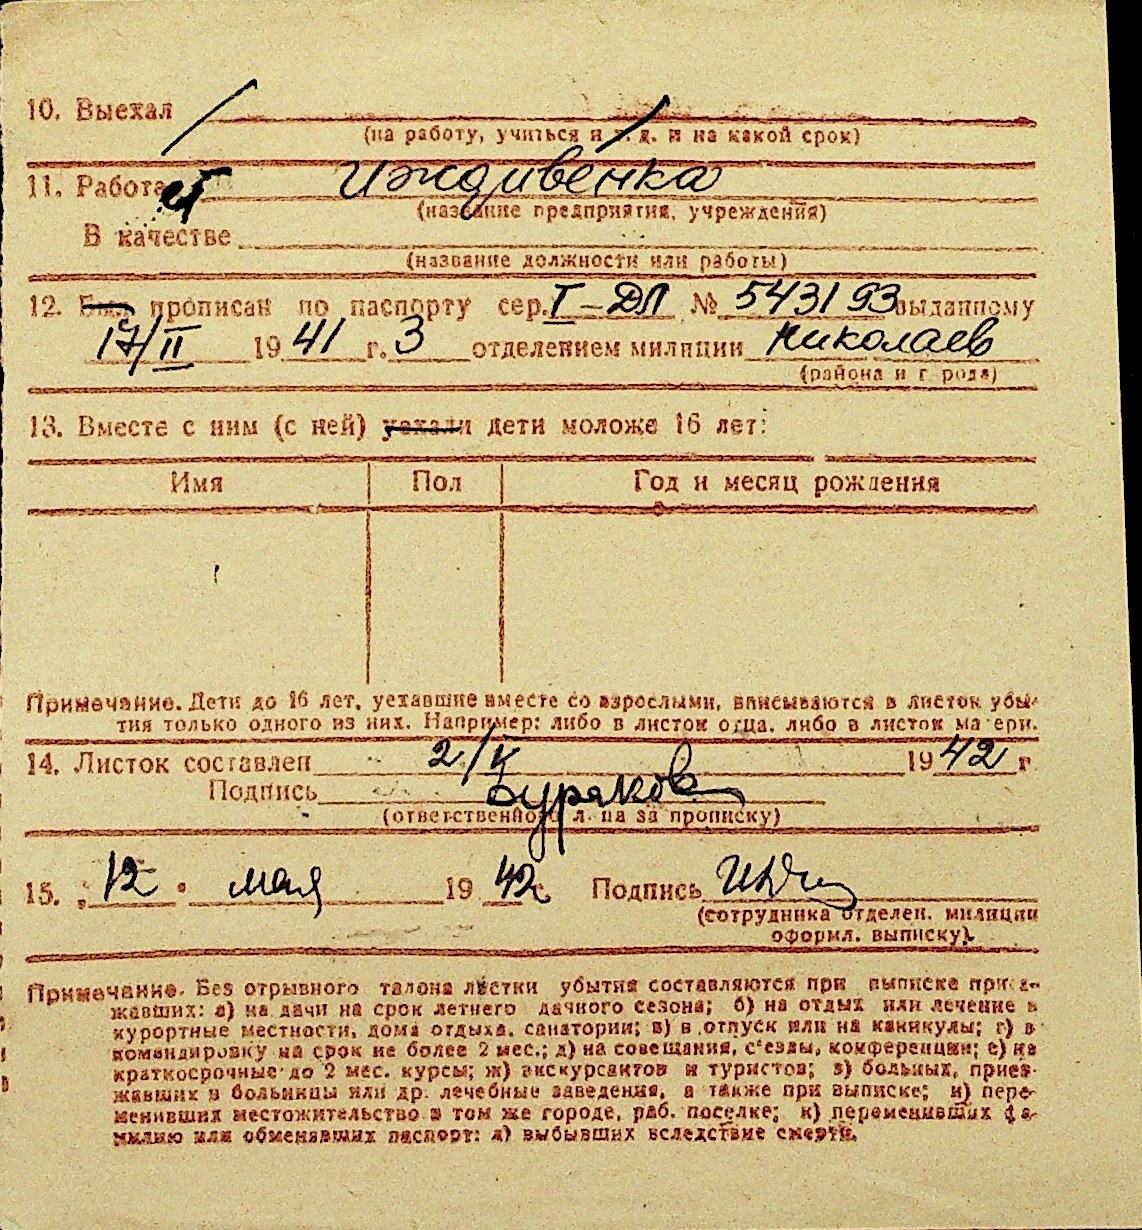 10. Выехал
(на работу, учиться и т. д. и на какой срок)
11. Работает иждивенка
(название предприятия, учреждения)
В качестве
(название должности или работы)
12. Был прописан по паспорту сер. I-ДЛ № 543193 выданному
17/II 1941 г. 3 отделением милиции Николаев
(района и города)
13. Вместе с ним (с ней) уехали дети моложе 16 лет:
Имя Пол Год и месяц рождения
Примечание. Дети до 16 лет, уехавшие вместе со взрослыми, вписываются в листок убы-
тия только одного из них. Например: либо в листок отца, либо в листок матери.
14. Листок составлен 2/V 1942 г
Подпись Буряков
(ответственного л. па за прописку)
15. "12" мая 1942 г. Подпись
(сотрудника отделен. милиции
оформл. выписку).
Примечание. Без отрывного талона листки убытия составляются при выписке приез-
жавших: а) на дачи на срок летнего дачного сезона; б) на отдых или лечение в
курортные местности, дома отдыха, санатории; в) в отпуск или на каникулы; г) в
командировку на срок не более 2 мес.; д) на совещания, с'езды, конференции; е) на
краткосрочные до 2 мес. курсы; ж) экскурсантов и туристов; з) больных, приез-
жавших в больницы или др. лечебные заведения, а также при выписке; и) пере-
менивших местожительство в том же городе, раб. поселке; к) переменивших фа-
милию или обменявших паспорт; л) выбывших вследствие смерти.